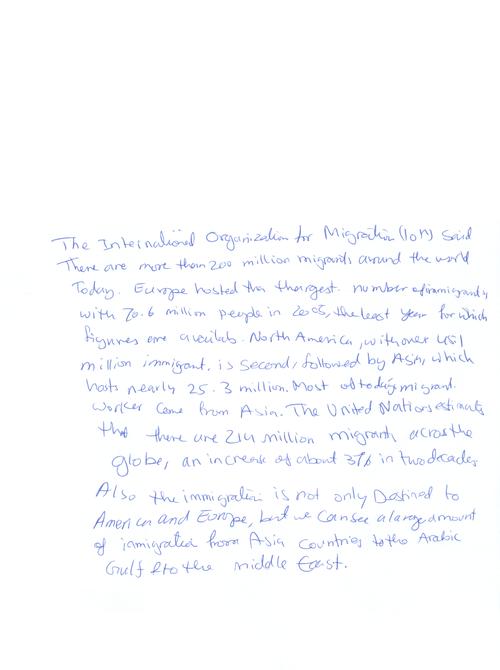 The International Organization for Migration (IOM) said
There are more than 200 million migrants around the world
Today. Europe hosted the thargest. number of immigrants
with 70.6 million people in 2005, the least year for which
figures are availab. North America, with over 45.1
million immigrant. is second, followed by Asia, which
hosts nearly 25.3 million. Most of today migrant.
worker come from Asia. The United Nations estimats
that there are 214 million migrants across the
globe, an increase of about 37% in two decades
Also the immigration is not only Destined to
American and Europe, but we can see a large amount
of immigrated from Asia countries to the Arabic
Gulf & to the middle East.